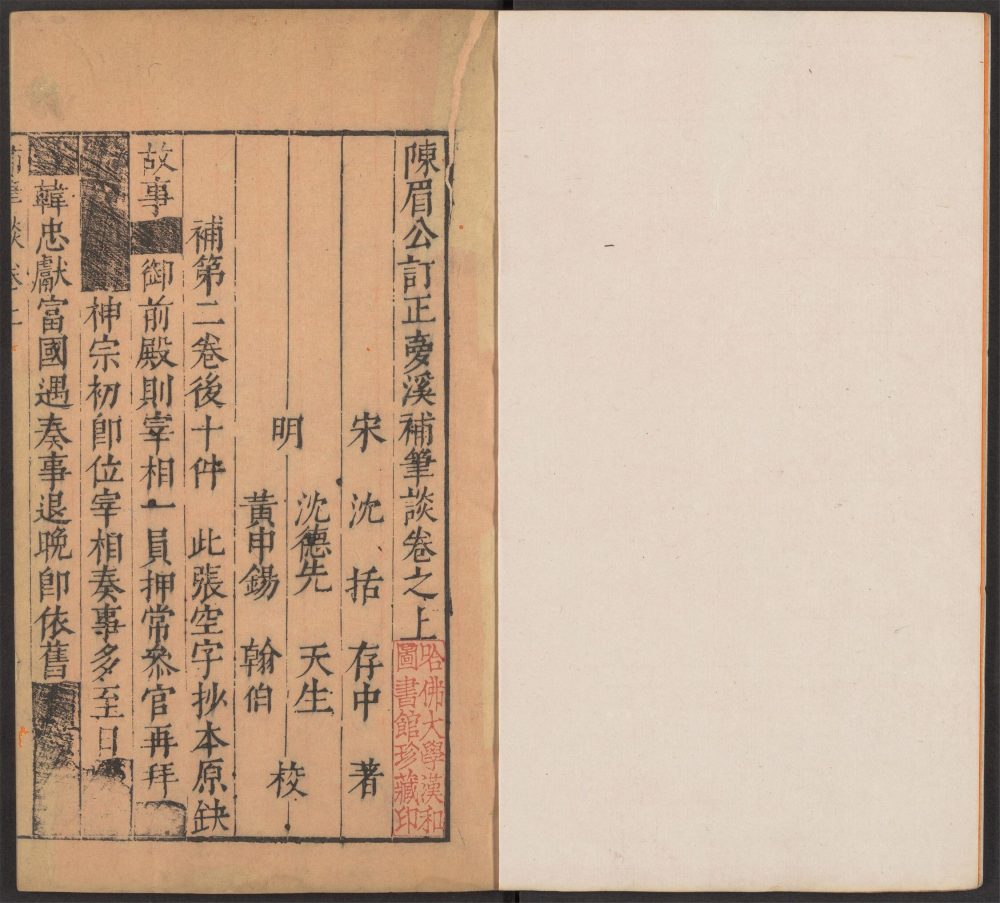 陳眉公訂正夢溪補筆談卷之上
哈佛大學漢和
圖書館珍藏印
宋 沈括 存中 著
沈德先 天生
明 校
黃申錫 翰伯
補第二卷後十件 此張空字抄本原缺
故事 御前殿則宰相一員押常叅官再拜
神宗初卽位宰相奏事多至日
韓忠獻富國遇奏事退晚卽依舊
補筆談卷上